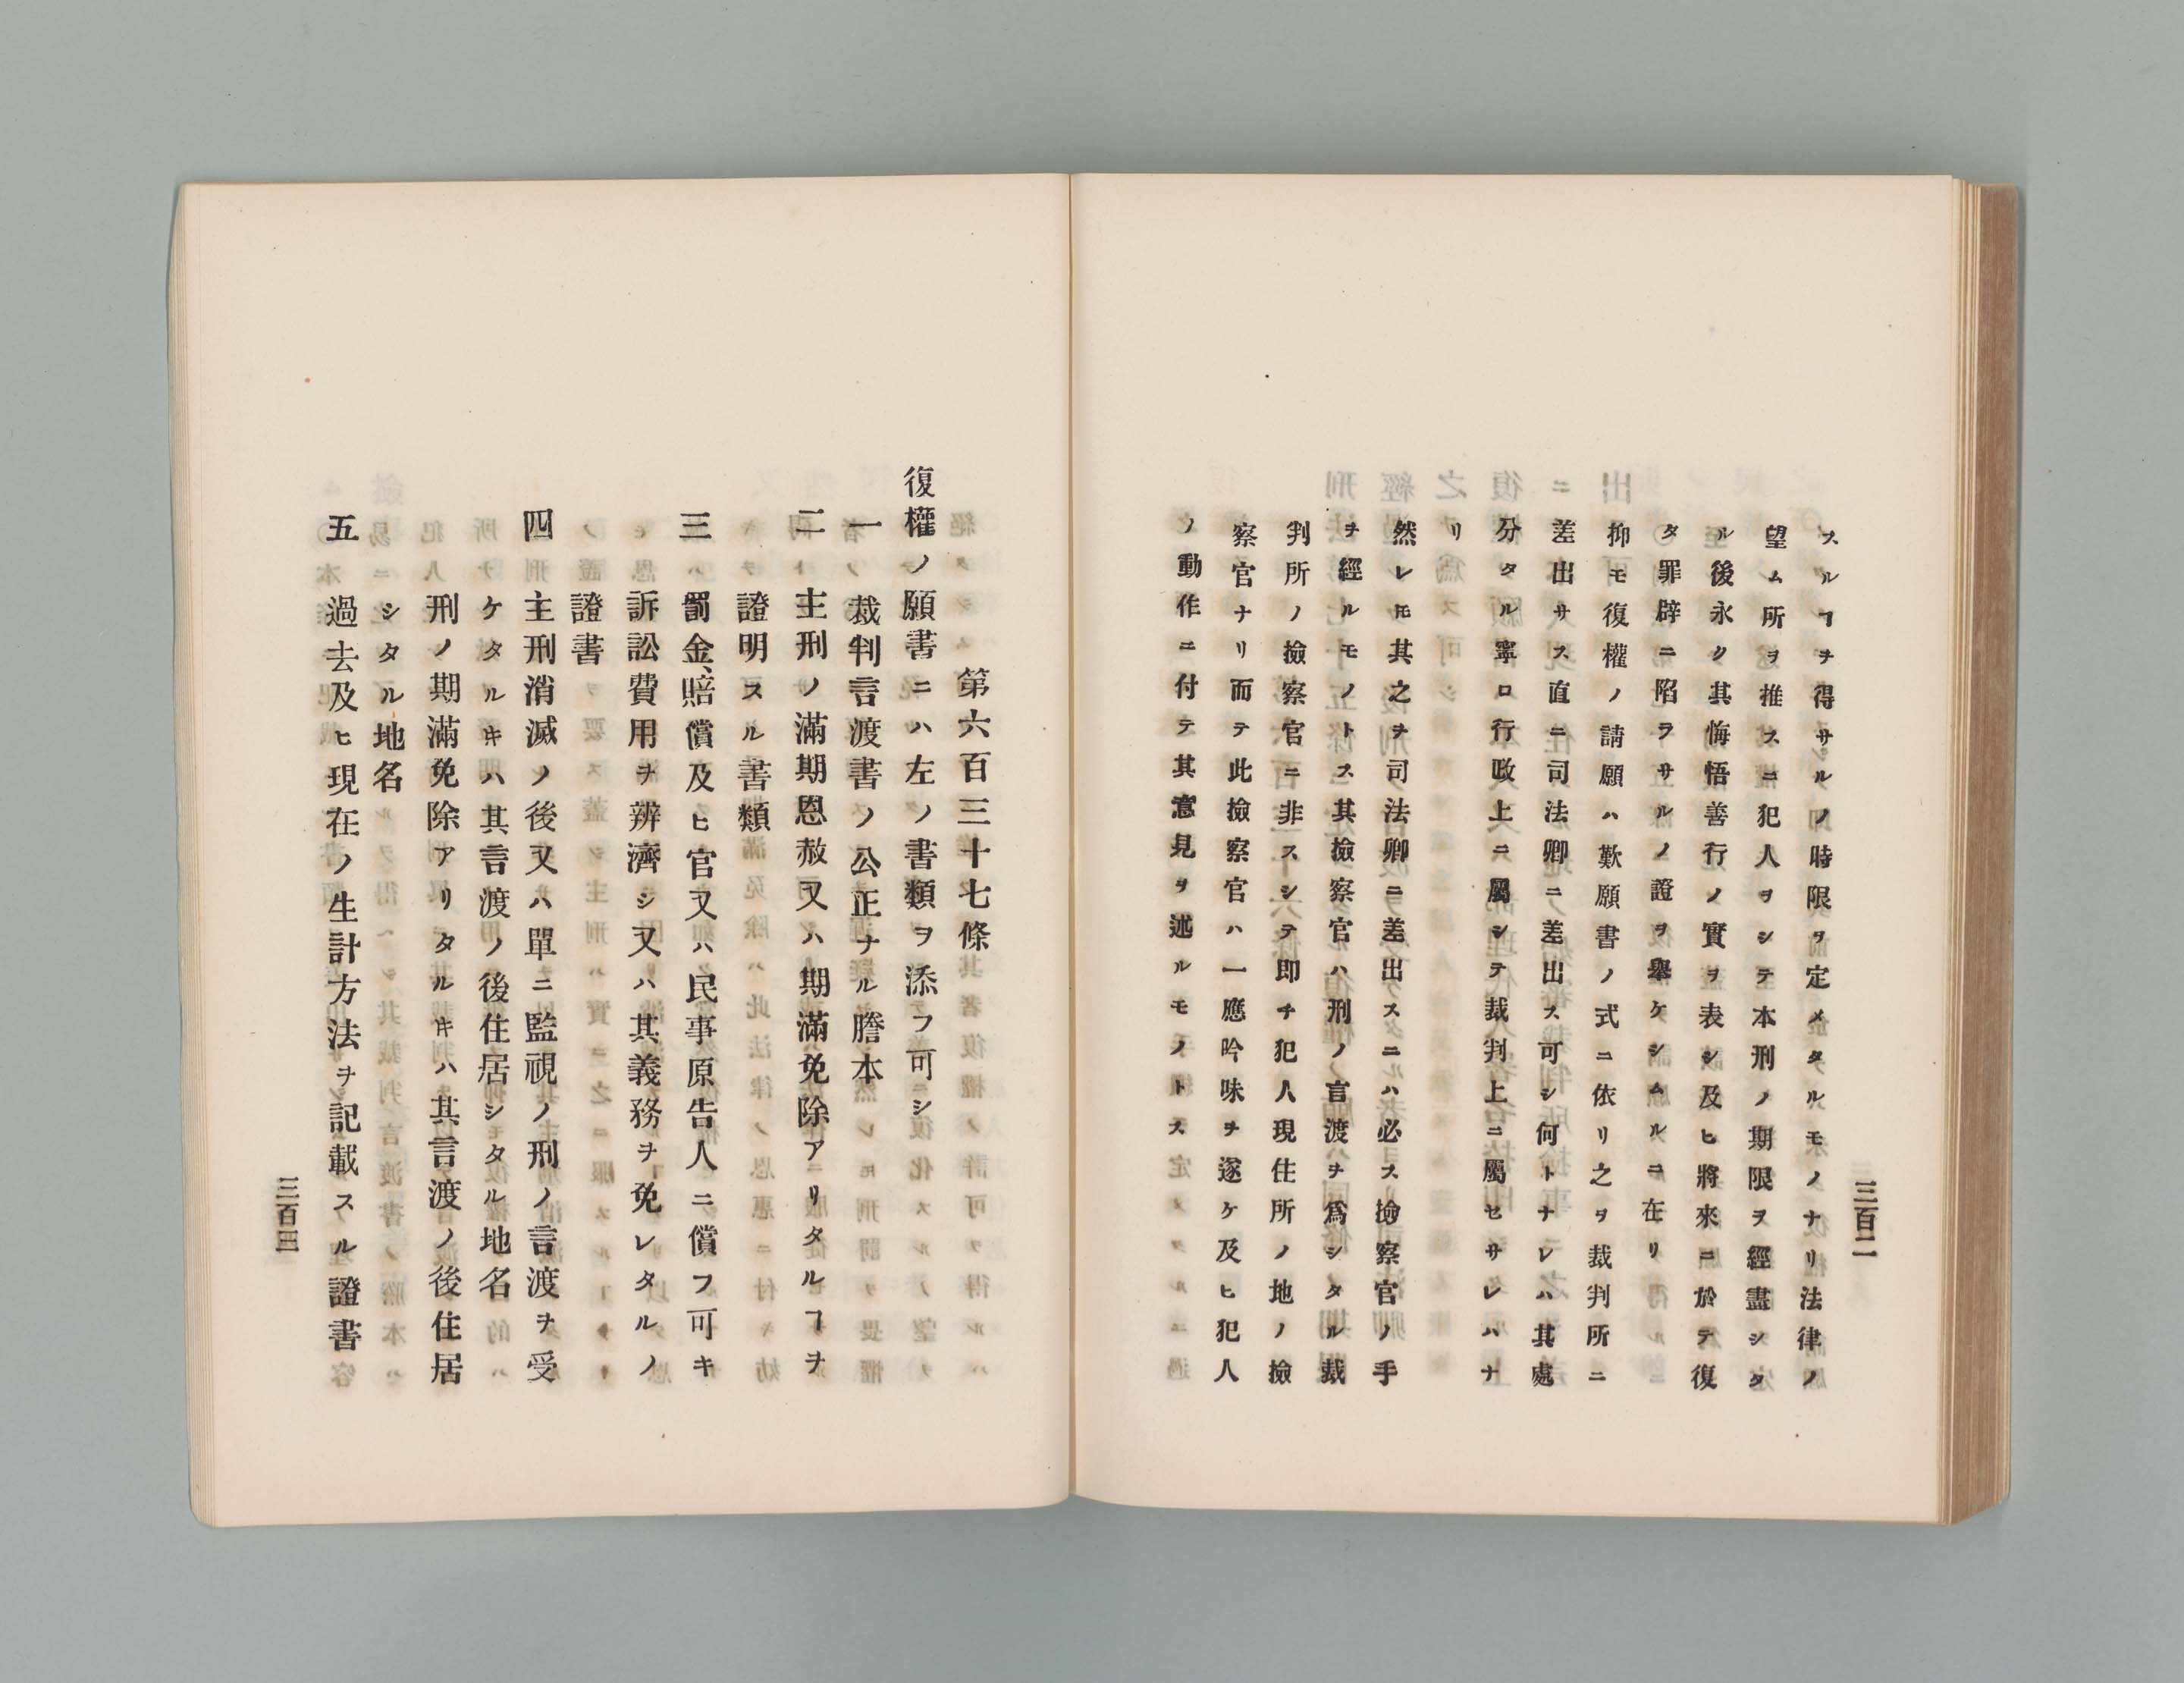 三百二
スルヿヲ得サルノ時限ヲ定メタルモノナリ法律ノ
望ム所ヲ推スニ犯人ヲシテ本刑ノ期限ヲ經盡シタ
ル後永ク其悔悟善行ノ實ヲ表シ及ヒ將來ニ於テ復
タ罪辟ニ陷ラサルノ證ヲ擧ケシムルニ在リ
抑モ復權ノ請願ハ歎願書ノ式ニ依リ之ヲ裁判所ニ
差出サス直ニ司法卿ニ差出ス可シ何トナレハ其處
分タル寧ロ行政上ニ屬シテ裁判上ニ屬セサレハナ
リ
然レ𪜈其之ヲ司法卿ニ差出スニハ必ス撿察官ノ手
ヲ經ルモノトス其撿察官ハ刑ノ言渡ヲ爲シタル裁
判所ノ撿察官ニ非スシテ即チ犯人現住所ノ地ノ撿
察官ナリ而テ此撿察官ハ一應吟味ヲ遂ケ及ヒ犯人
ノ動作ニ付テ其意見ヲ述ルモノトス
第六百三十七條
復權ノ願書ニハ左ノ書類ヲ添フ可シ
一 裁判言渡書ノ公正ナル謄本
二 主刑ノ滿期恩赦又ハ期滿免除アリタルヿヲ
證明スル書類
三 罰金、賠償及ヒ官又ハ民事原告人ニ償フ可キ
訴訟費用ヲ辨濟シ又ハ其義務ヲ免レタルノ
證書
四 主刑消滅ノ後又ハ單ニ監視ノ刑ノ言渡ヲ受
ケタルキハ其言渡ノ後住居シタル地名
刑ノ期滿免除アリタルキハ其言渡ノ後住居
シタル地名
五 過去及ヒ現在ノ生計方法ヲ記載スル證書
三百三